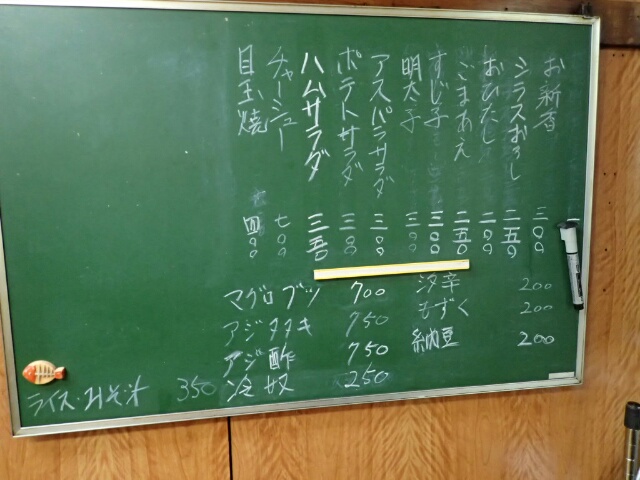 お新香 三〇〇
シラスおろし 二五〇
おひたし 二〇〇
ごまあえ 二五〇
すじ子 三〇〇
明太子 三〇〇
アスパラサラダ 三〇〇
ポテトサラダ 三〇〇
ハムサラダ 三五〇
チャーシュー 七〇〇
目玉焼 四〇〇
汐辛 200
もずく 200
納豆 200
マグロブツ 700
アジタタキ 750
アジ酢 750
冷奴 250
ライス・みそ汁 350